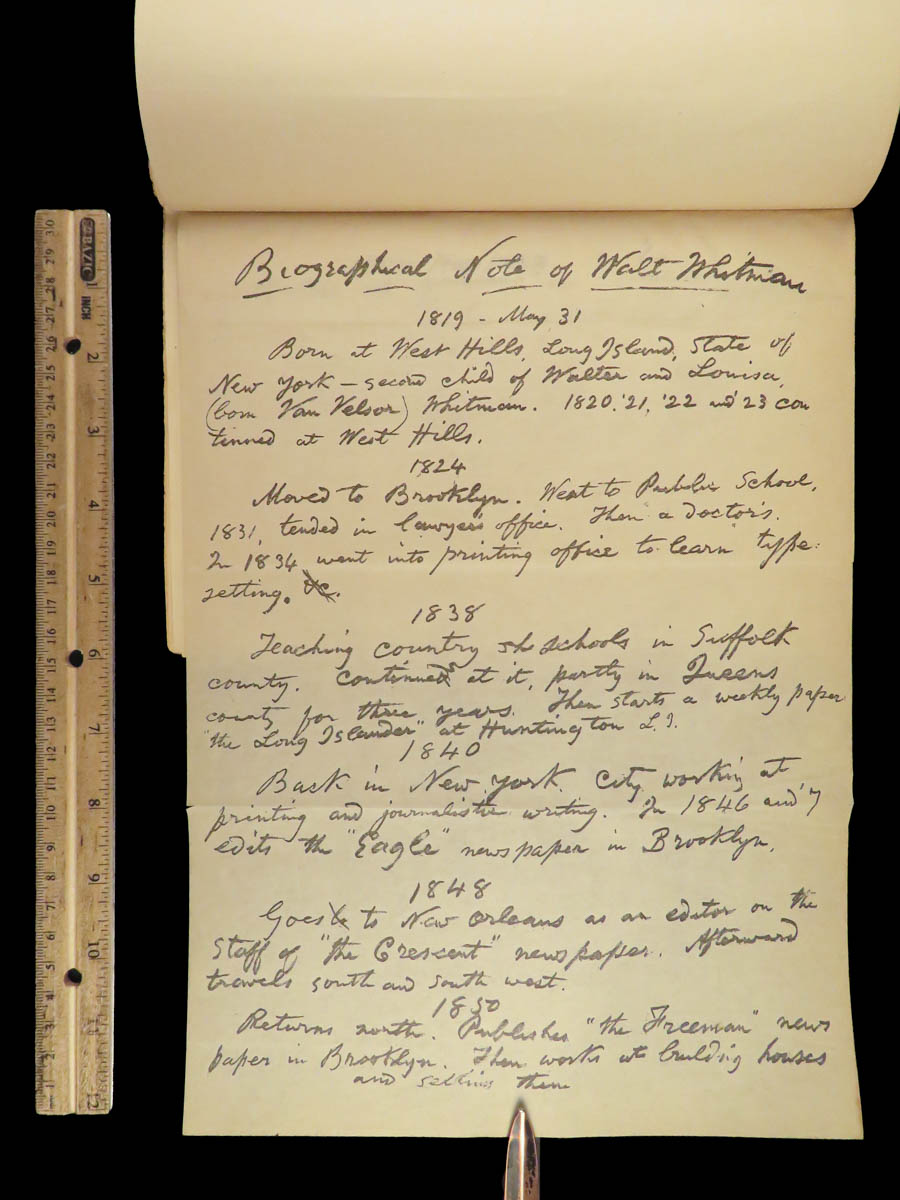 Biographical Note of Walt Whitman
1819 - May 31
Born at West Hills, Long Island, State of
New York – second child of Walter and Louisa,
(born Van Velsor) Whitman. 1820, '21, '22 and '23 con
tinued at West Hills.
1824
Moved to Brooklyn. Went to Public School,
1831, tended in lawyer's office. Then a doctor's.
In 1834 went into printing office to learn type-
setting. &c.
1838
Teaching country schools in Suffolk
county. Continued at it, partly in Queens
county for three years. Then starts a weekly paper
"the Long Islander" at Huntington L.I.
1840
Back in New York City working at
printing and journalistic writing. In 1846 and '7
edits the "Eagle" newspaper in Brooklyn.
1848
Goes to New Orleans as an editor on the
staff of "the Crescent" newspaper. Afterward
travels south and south west.
1850
Returns north. Publishes "the Freeman" news
paper in Brooklyn. Then works at building houses
and selling them
BAZIC
INCH
1 2 3 4 5 6 7 8 9 10 11 12
30 29 28 27 26 25 24 23 22 21 20 19 18 17 16 15 14 13 12 11 10 9 8 7 6 5 4 3 2 1